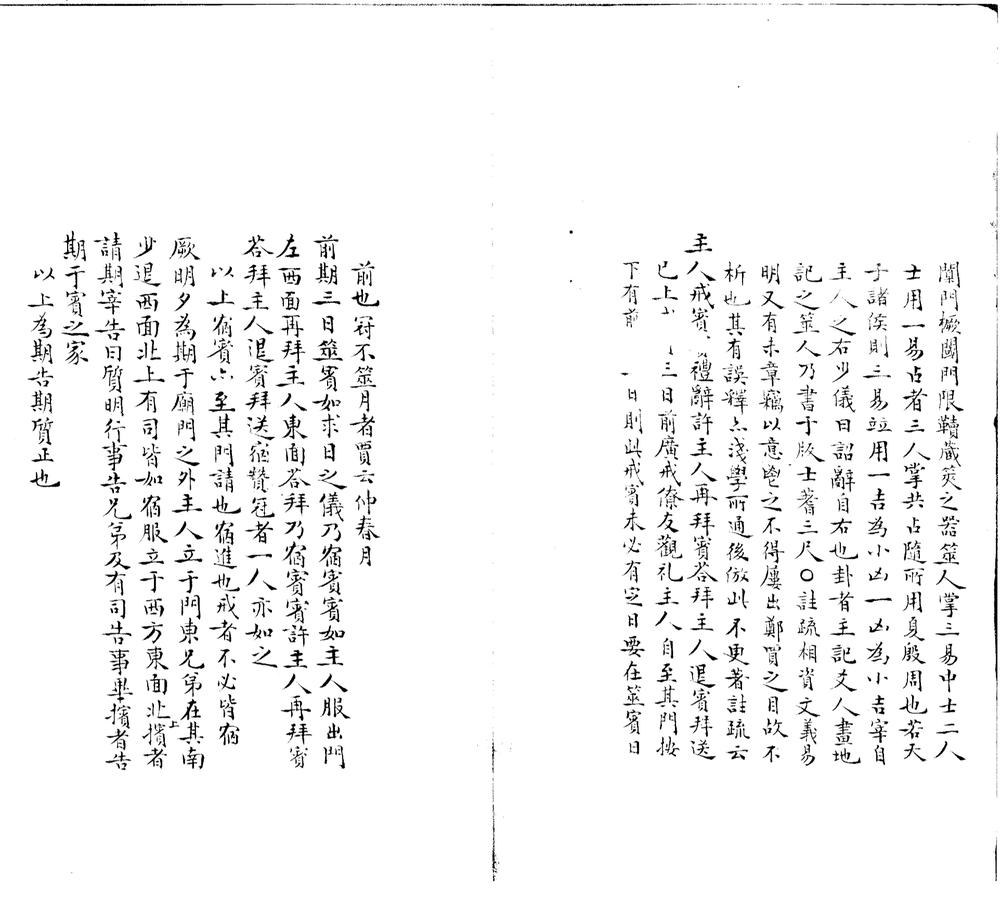 闑門橛閾門限韇藏筴之器筮人掌三易中士二人
士用一易占者三人掌共占隨所用夏殷周也若天
子諸侯則三易竝用一吉為小凶一凶為小吉宰自
主人之右少儀曰詔辭自右也卦者主記爻人畫地
記之筮人乃書于版士蓍三尺〇註疏相資文義易
明又有未章竊以意鬯之不得屢出鄭賈之目故不
析也其有誤釋亦淺學所通後倣此不更著註疏云
主人戒賓禮辭許主人再拜賓荅拜主人退賓拜送
已上 三日前廣戒僚友觀礼主人自至其門按
下有前 日則此戒賓未必有定日要在筮賓日
前也冠不筮月者賈云仲春月
前期三日筮賓如求日之儀乃宿賓賓如主人服出門
左西面再拜主人東面荅拜乃宿賓賓許主人再拜賓
荅拜主人退賓拜送宿贊冠者一人亦如之
以上宿賓亦至其門請也宿進也戒者不必皆宿
厥明夕為期于廟門之外主人立于門東兄弟在其南
少退西面北上有司皆如宿服立于西方東面北上擯者
請期宰告曰質明行事告兄弟及有司告事畢擯者告
期于賓之家
以上為期告期質正也